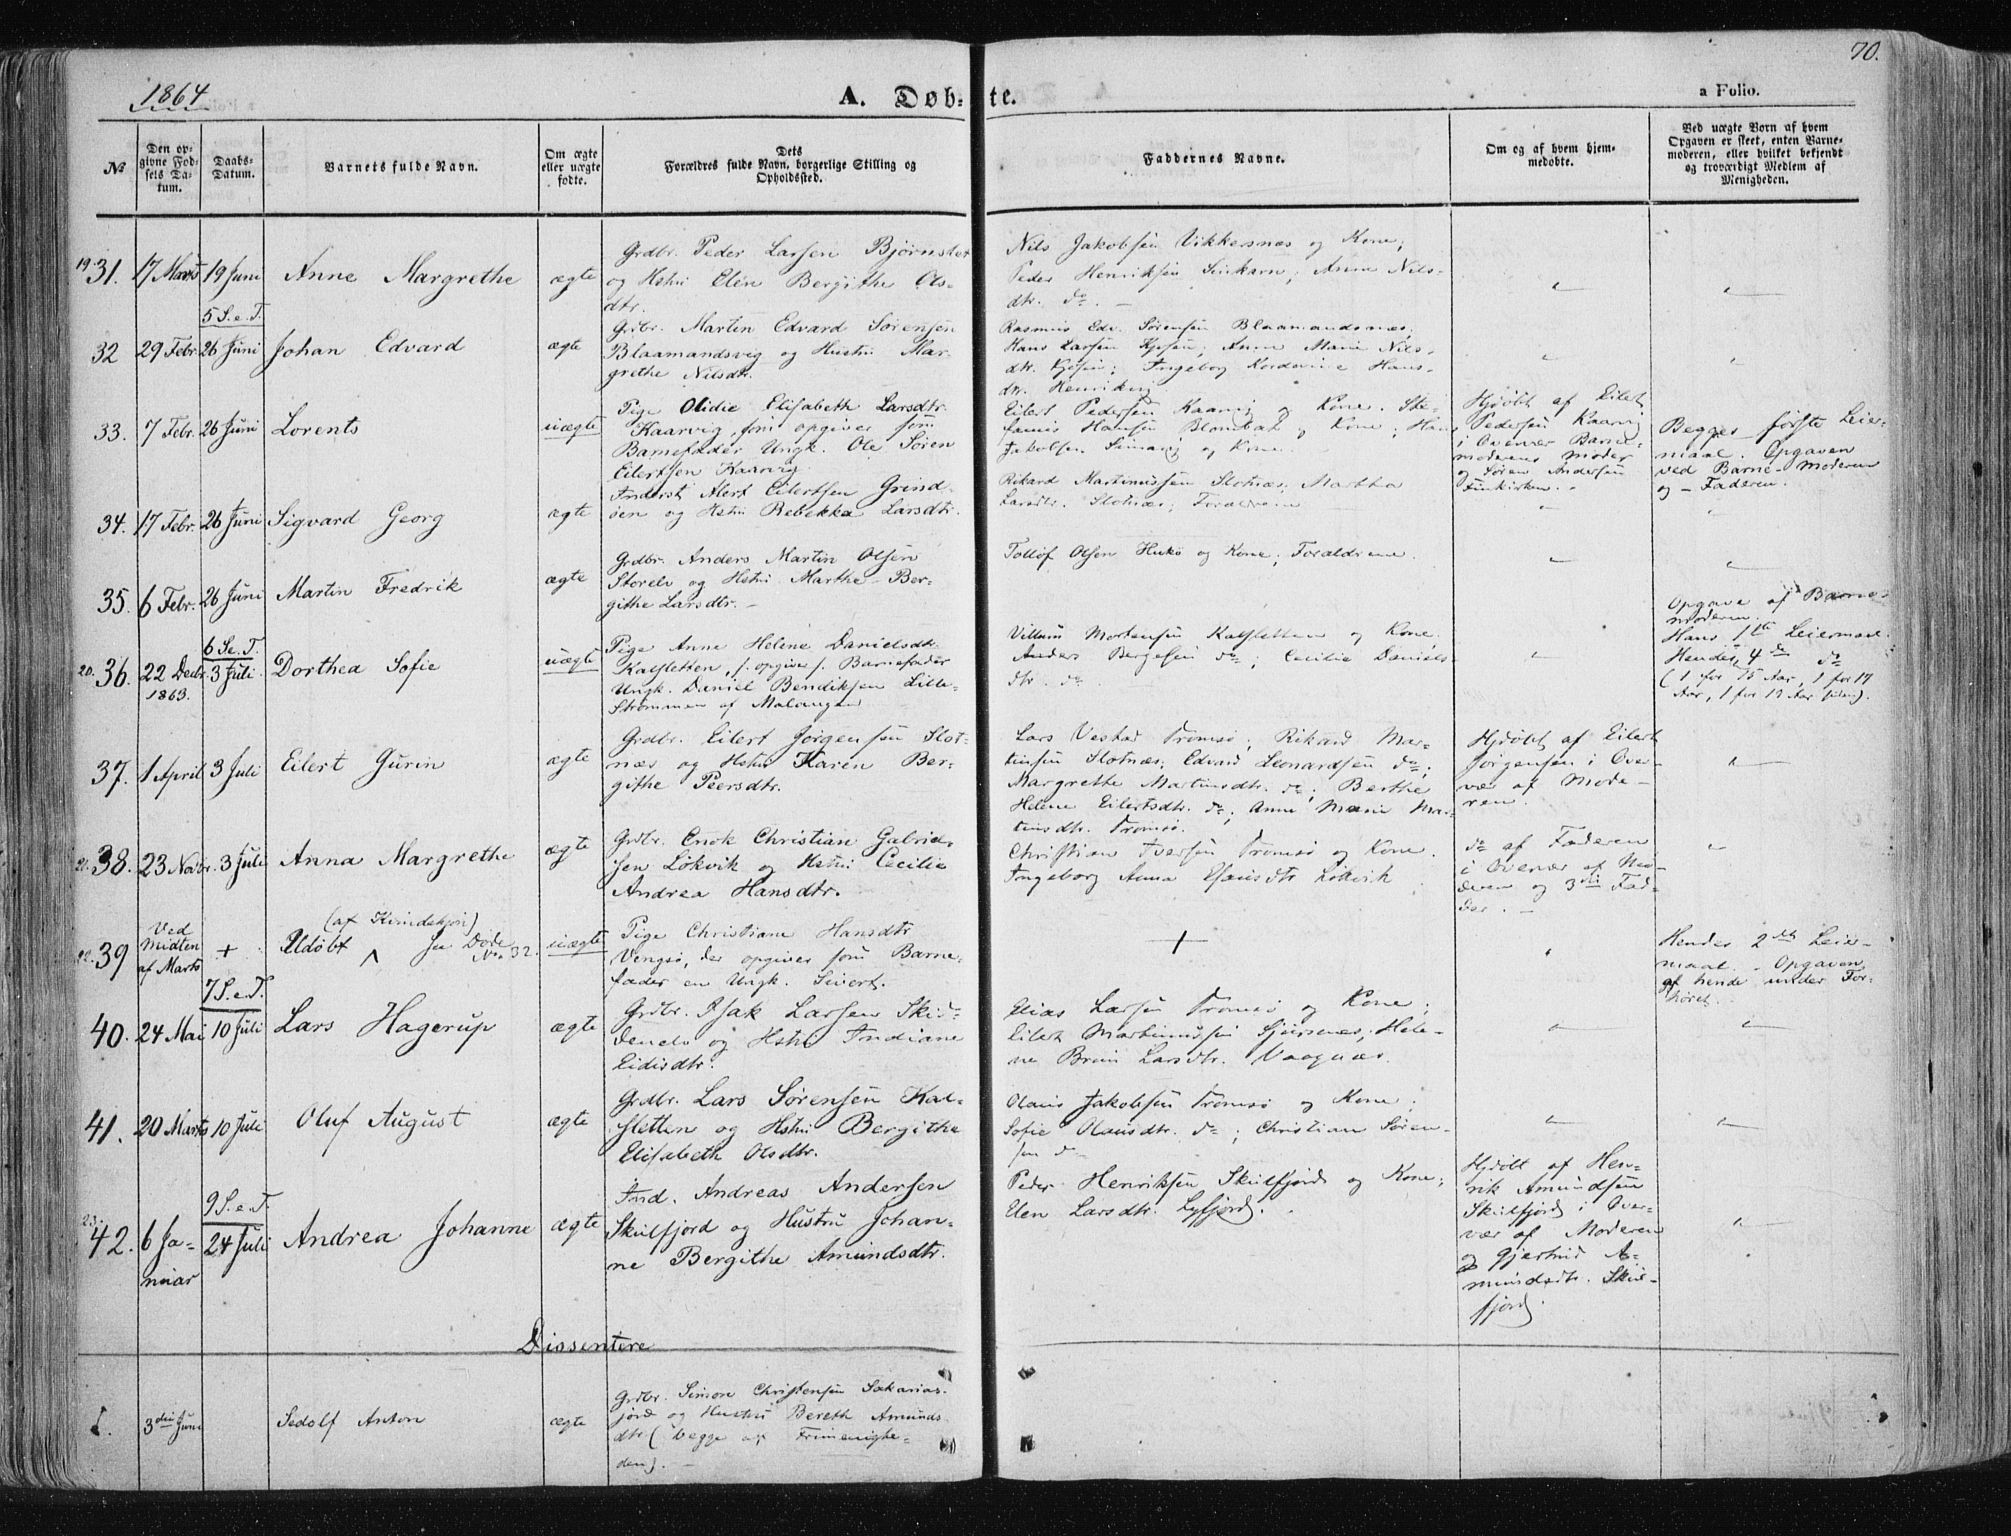 1864
A. Døbte.
a Folio.
70.
No
Den opgivne Fødsels Datum.
Daabs-Datum.
Barnets fulde Navn.
Om ægte eller uægte fødte.
Dets Forældres fulde Navn, borgerlige Stilling og Opholdssted.
Faddernes Navne.
Om og af hvem hjemmedøbte.
Ved uægte Børn af hvem Opgaven er skeet, enten Barnemoderen, eller hvilket bekjendt og troværdigt Medlem af Menigheden.
19. 31. 17 Marts 19 Juni Anne Margrethe ægte
Grdbr. Peder Larsen
og Hstru Elen Bergithe Ols-
dtr.
Nils Jakobsen Vikkesnæs og Kone;
Peder Henriksen; Anna Nils-
dtr. do. -
5 S.e.T.
32 29 Febr. 26 Juni Johan Edvard ægte
Grdbr. Martin Edvard Sørensen
Blaamandsvig og Hustru Mar-
grethe Nilsdtr.
Rasmus Edv. Sørensen Blaamandsnæs;
Hans Larsen; Anne Marie Nils-
dtr.; Ingeborg Hans-
dtr.
33. 7 Febr. 26 Juni Lorents uægte
Pige Olidie Elisabeth Larsdtr.
Kaarvig, som opgiver som
Barnefader Ungk. Ole Søren
Eilertsen Kaarvig.
Eilert Pedersen Kaarvig og Kone. Ste-
fanus Hansen og Kone; Hans
Jakobsen og Kone.
Hjdøbt af Eilert
Pedersen Kaarvig
i Overvær Barne-
moderens Moder
og Søren Andersen
Finkirken. -
Begges første Leier-
maal. Opgaven
ved Barne-Moderen
og - Faderen.
34. 17 Febr. 26 Juni Sigvard Georg ægte
Inderst Alert Eilertsen Grind-
øen og Hstru Rebekka Larsdtr.
Rikard Martinussen Slotnæs; Martha
Larsdtr. Slotnæs; Forældrene
35. 6 Febr. 26 Juni Martin Fredrik ægte
Grdbr. Anders Martin Olsen
Storelv og Hstru Marthe Ber-
githe Larsdtr. -
Tollef Olsen og Kone; Forældrene.
6 S.e.T.
20. 36. 22 Decbr. 1863. 3 Juli Dorthea Sofie uægte
Pige Anne Helene Danielsdtr.
Kalsletten, /: opgiver /: Barnefader
Ungk. Daniel Bendiksen Lille-
Strømmen af Malangen
Villum Mortensen Kalsletten og Kone.
Anders Bergesen do; Cecilie Daniels-
dtr. do.
Opgave af Barne-
moderen.
Hans 1te Leiermaal.
Hendes 4de do
(1 for 15 Aar, 1 for 17
Aar, 1 for 12 Aar siden).
37. 1 April 3 Juli Eilert Gurin ægte
Grdbr. Eilert Jørgensen Slot-
næs og Hstru Karen Ber-
githe Peersdtr.
Lars Vestad Tromsø; Rikard Mar-
tinsen Slotnæs; Edvard Leonardsen do;
Margrethe Martinsdtr. do; Berthe
Helene Eilertsdtr. do; Anne Marie Mar-
tinsdtr. Tromsø.
Hjdøbt af Eilert
Jørgensen i Over-
vær af Mode-
ren.
21. 38. 23 Novbr. 3 Juli Anna Margrethe ægte
Grdbr. Enok Christian Gabriel-
sen Løkvik og Hstru Cecilia
Andrea Hansdtr.
Christian Iversen Tromsø og Kone.
Ingeborg Anna Hansdtr Løkvik
do af Faderen
i Overvær af Mo-
deren og 3die Fad-
der. -
22. 39 Ved Midten af Marts + Udøbt (af Kvindekjøn) Se Døde No. 32. uægte
Pige Christiane Hansdtr
Vengsø, der opgiver som Barne-
fader en Ungk. Sivert.
+
Hendes 2det Leier-
maal. - Opgaven
af hende under For-
høret.
7 S.e.T.
40. 24 Mai 10 Juli Lars Hagerup ægte
Grdbr. Isak Larsen Ski-
denelv og Hstru Indiane
Eidisdtr.
Elias Larsen Tromsø og Kone;
Eilert Martinussen; Hele-
ne Bruun Larsdtr. Vaagnæs.
41. 20 Marts 10 Juli Oluf August ægte
Grdbr. Lars Sørensen Kal-
sletten og Hstru Bergithe
Elisabeth Olsdtr.
Olaus Jakobsen Tromsø og Kone;
Sofie Olausdtr. do; Christian Søren-
sen do
9 S.e.T.
23. 42. 6 Januar 24 Juli Andrea Johanne ægte
Ind. Andreas Andersen
Skulfjord og Hustru Johan-
ne Bergithe Amundsdtr.
Peder Henriksen Skulfjord og Kone;
Elen Larsdtr. Lyfjord.
Hjdøbt af Hen-
rik Amundsen
Skulfjord i Over-
vær af Moderen
og Gjertrud A-
mundsdtr. Skul-
fjord.
Dissentere
1. 3die Juni Sedolf Anton ægte
Grdbr. Simon Christensen Sakarias-
jord og Hustru Bereth Amunds
dtr (begge af Frimenighe-
den). -